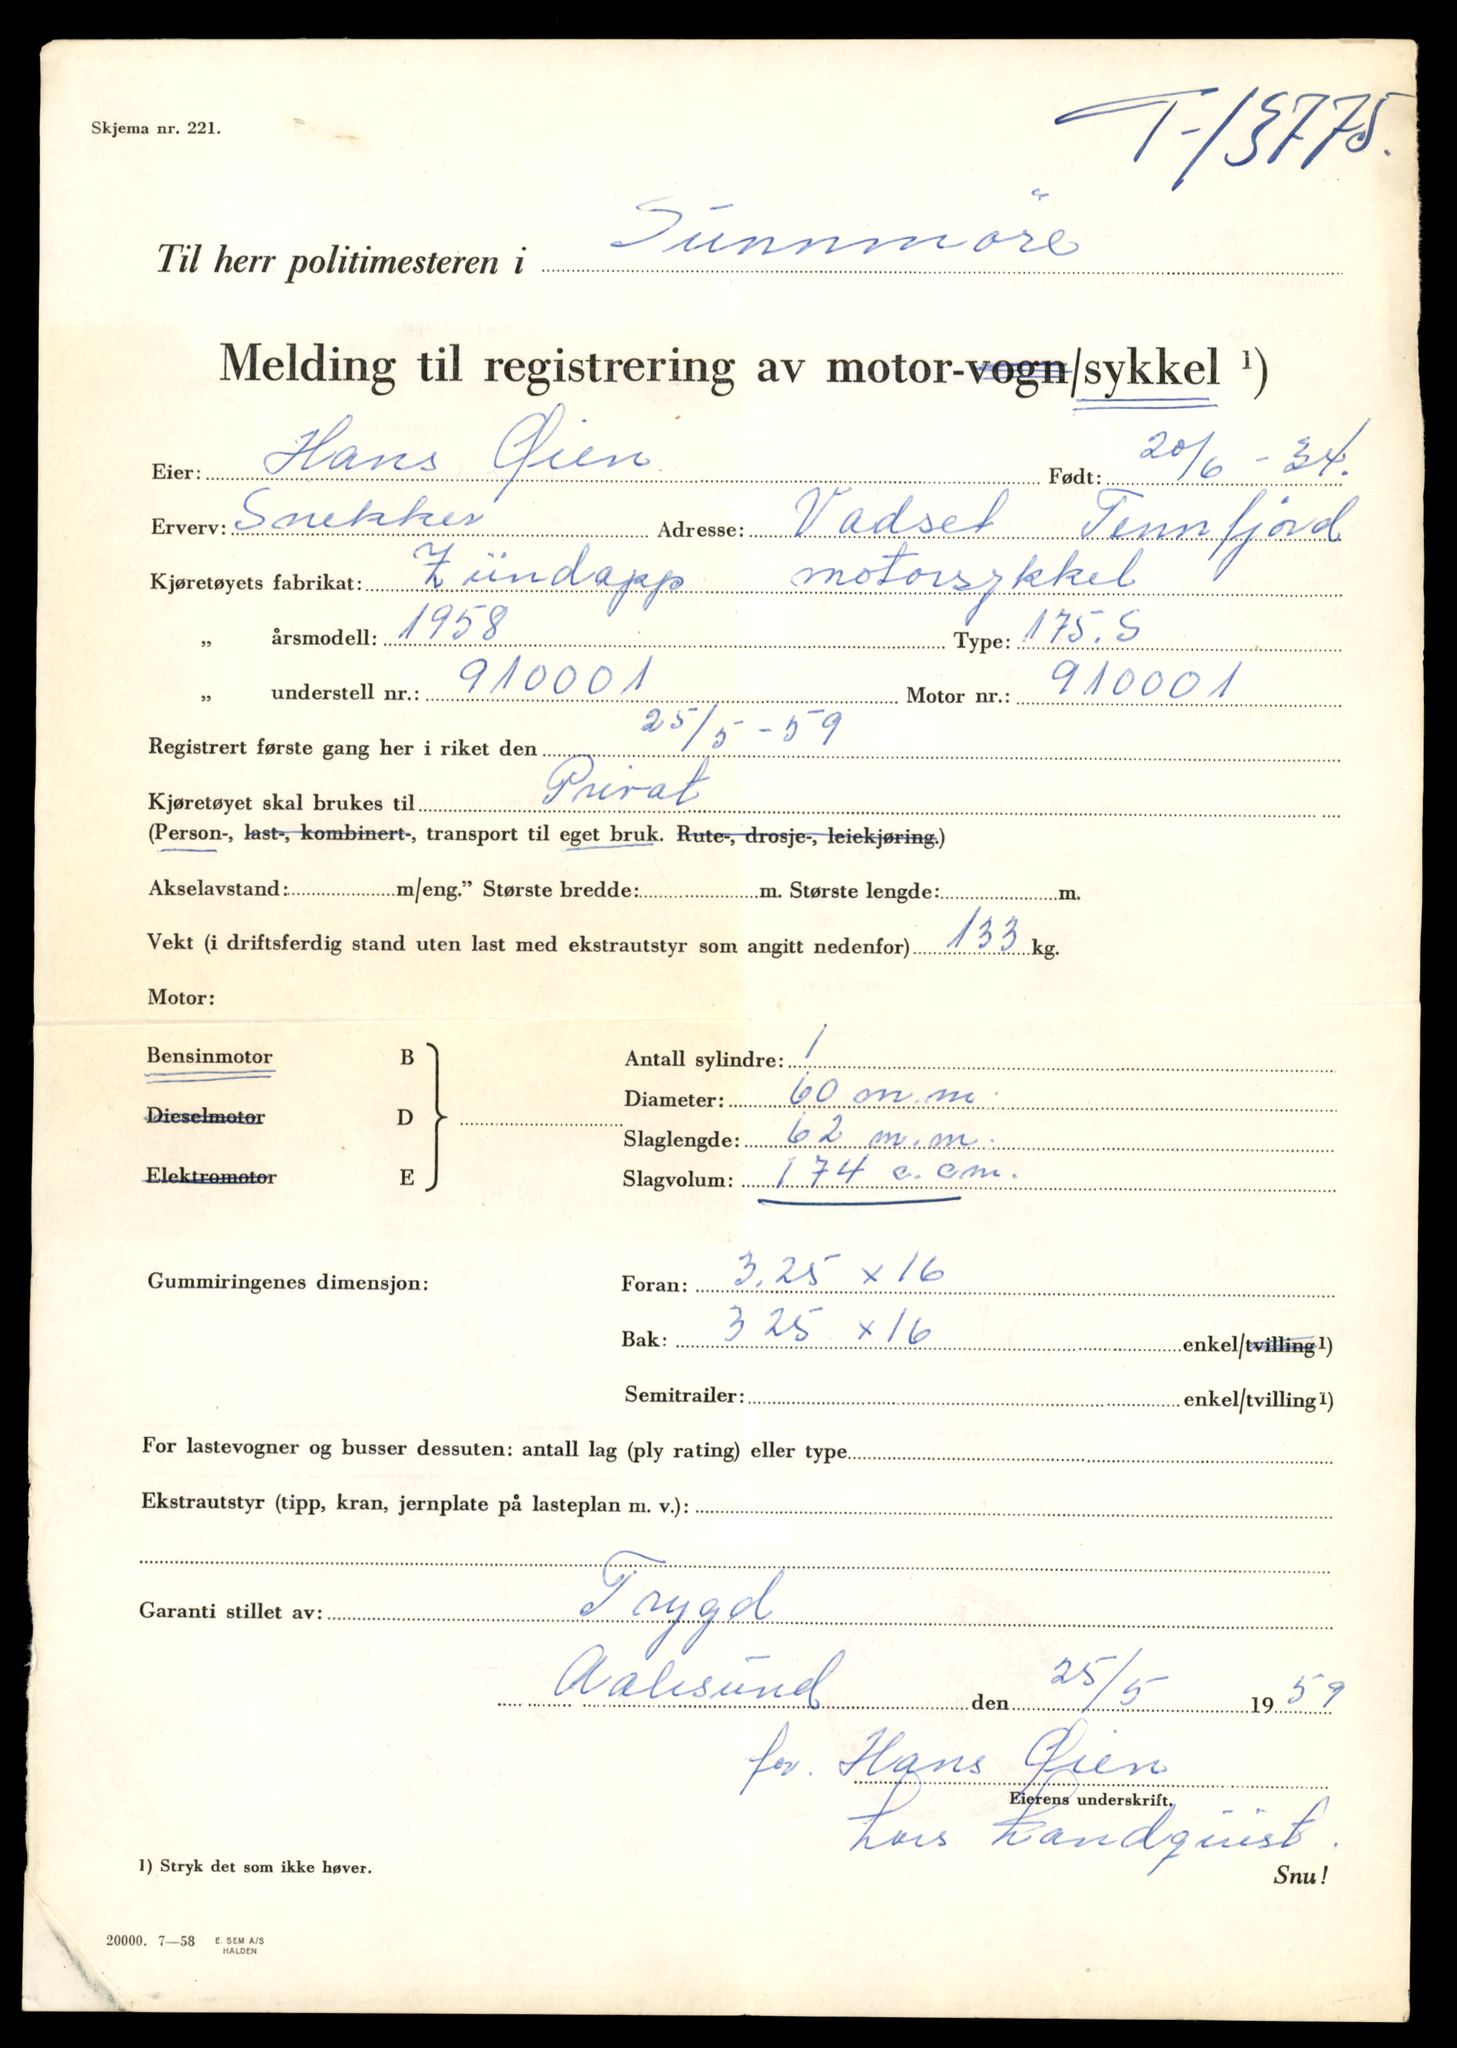 T-13775.
Skjema nr. 221.
Til herr politimesteren i Sunnmöre
Melding til registrering av motor-vogn/sykkel 1)
Eier: Hans Øien Født: 20/6 - 34.
Erverv: Snekker Adresse: Vadset Tennfjord
Kjøretøyets fabrikat: Zündapp motorsykkel
„ årsmodell: 1958 Type: 175. S
„ understell nr.: 910001 Motor nr.: 910001
Registrert første gang her i riket den 25/5 - 59
Kjøretøyet skal brukes til Privat
(Person-, last-, kombinert-, transport til eget bruk. Rute-, drosje-, leiekjøring.)
Akselavstand: m/eng.” Største bredde: m. Største lengde: m.
Vekt (i driftsferdig stand uten last med ekstrautstyr som angitt nedenfor) 133 kg.
Motor:
Bensinmotor B Antall sylindre: 1
Diameter: 60 m.m.
Dieselmotor D
Slaglengde: 62 m.m.
Elektromotor E Slagvolum: 174 c.cm.
Gummiringenes dimensjon: Foran: 3.25 x 16
Bak: 3 25 x 16 enkel/tvilling 1)
Semitrailer: enkel/tvilling 1)
For lastevogner og busser dessuten: antall lag (ply rating) eller type
Ekstrautstyr (tipp, kran, jernplate på lasteplan m. v.):
Garanti stillet av: Trygd
Aalesund den 25/5 1959
for. Hans Øien
Eierens underskrift.
Lars Landquist.
1) Stryk det som ikke høver.
Snu!
20000. 7—58 E. SEM A/S
HALDEN